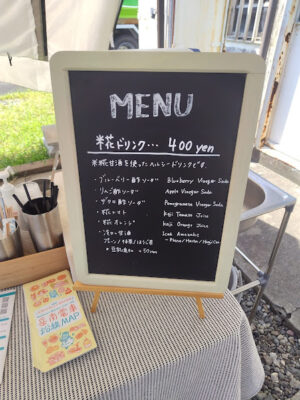 MENU
米花ドリンク… 400 yen
米糀甘酒を使ったヘルシードリンクです。
・ブルーベリー酢ソーダ Blueberry Vinegar Soda
・りんご酢ソーダ Apple Vinegar Soda
・ザクロ酢ソーダ Pomegranate Vinegar Soda
・糀トマト Koji Tomato Juice
・糀オレンジ Koji Orange Juice
・冷やし甘酒 Iced Amazake
プレーン/抹茶/ほうじ茶 - Plane/Macha/Hojicha
+50yen